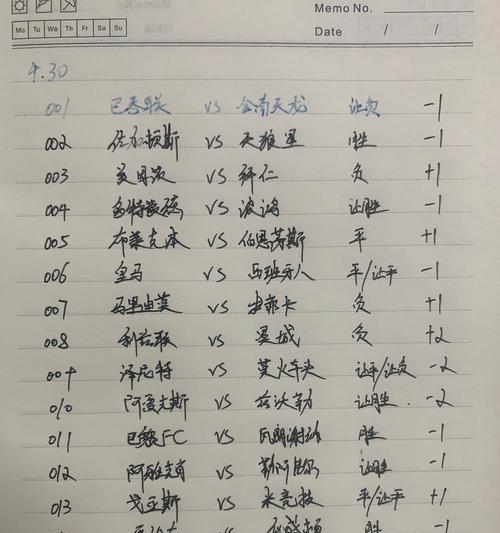 Memo No.
Mo Tu We Th Fr Sa Su
Date / /
4.30
001 巴吞联 VS 全南天龙 让负 -1
002 佐加顿斯 VS 天狼星 胜 -1
003 美因茨 VS 拜仁 负 +1
004 多特蒙德 VS 波鸿 让胜 -1
005 布莱克本 VS 伯恩茅斯 平 +1
006 皇马 VS 西班牙人 平/让平 -1
007 马里迪莫 VS 本菲卡 负 +1
008 利兹联 VS 曼城 负 +2
009 泽尼特 VS 莫火车头 让平/让负 -2
010 阿贾克斯 VS 兹沃勒 让胜 -2
011 巴黎FC VS 瓦朗谢纳 胜 -1
012 阿雅克肖 VS 勒阿弗尔 让胜 -1
013 戈亚斯 VS 米竞技 平/让平 +1
VS 胜 -1